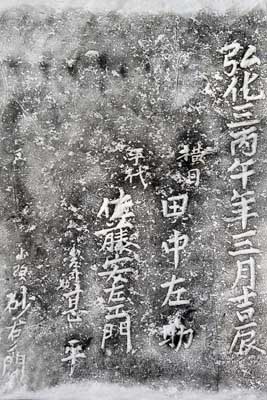 弘化三丙午年三月吉辰
横目
田中左助
年代
佐藤安左衛門
平
砂右衛門